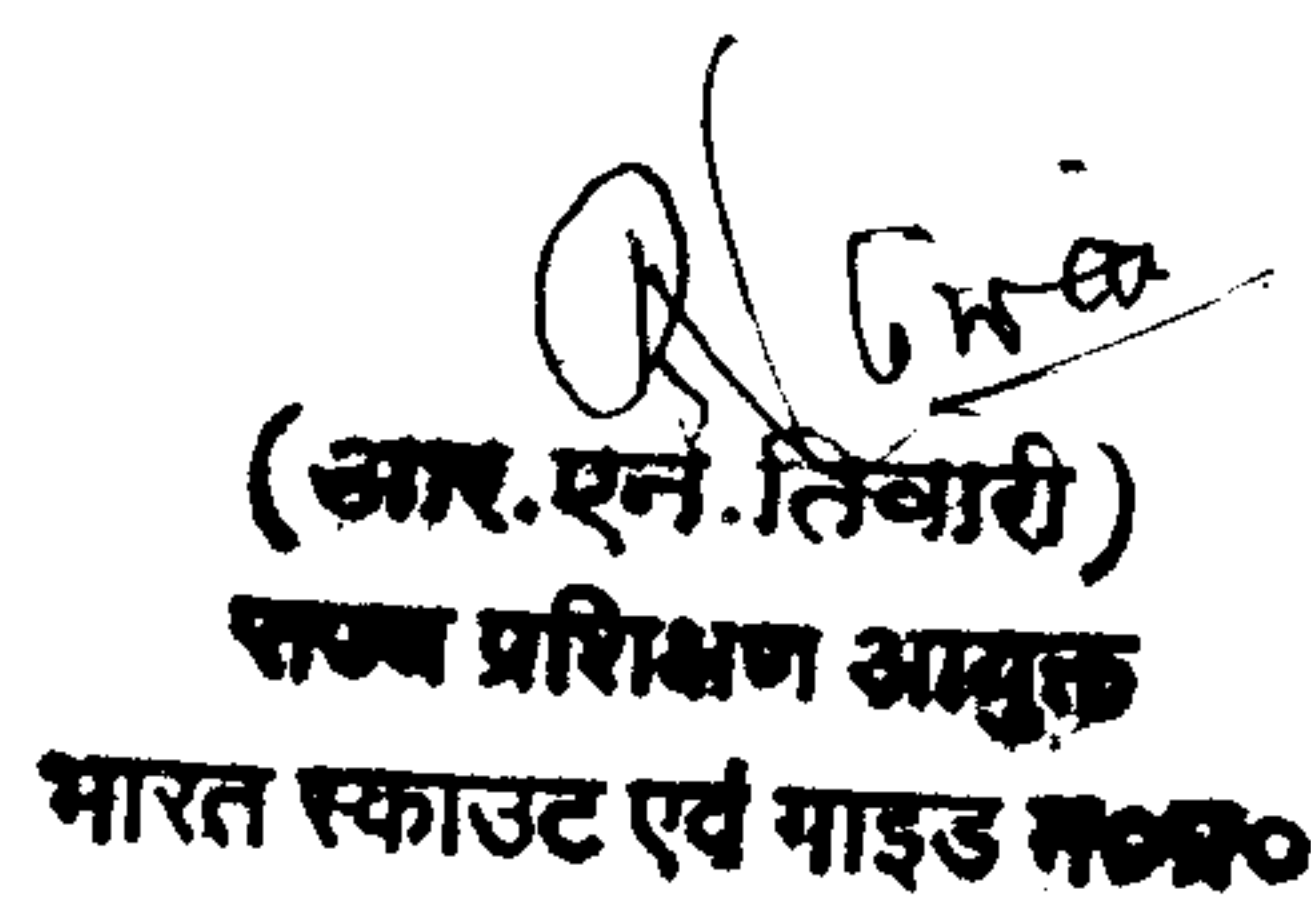 (आर.एन.तिवारी)
राज्य प्रशिक्षण आयुक्त
भारत स्काउट एवं गाइड म०प्र०